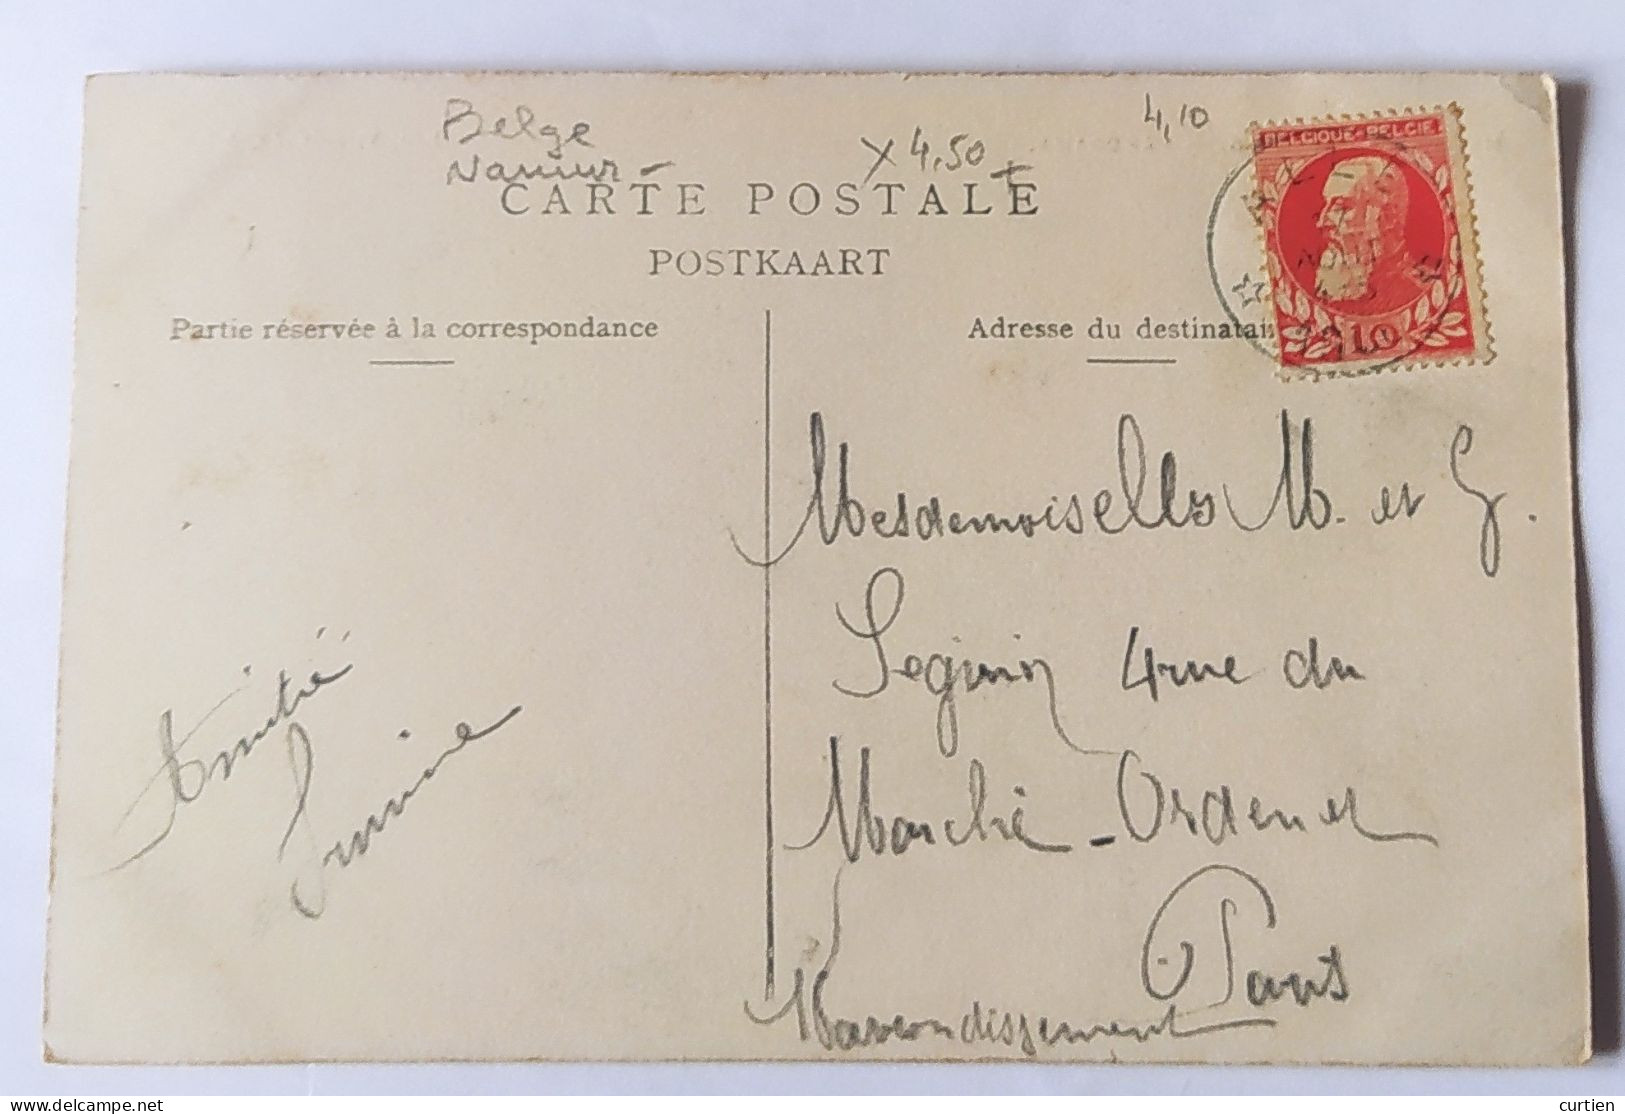 Belge
Namur -
x 4,50 +
4,10
CARTE POSTALE
POSTKAART
BELGIQUE-BELGIE
27
AOUT
10
Partie réservée à la correspondance
Adresse du destinatai
Mesdemoiselles M. et G.
4 rue du
Marché-Ordener
Paris
arrondissement
Amitié
delcampe.net
curtien